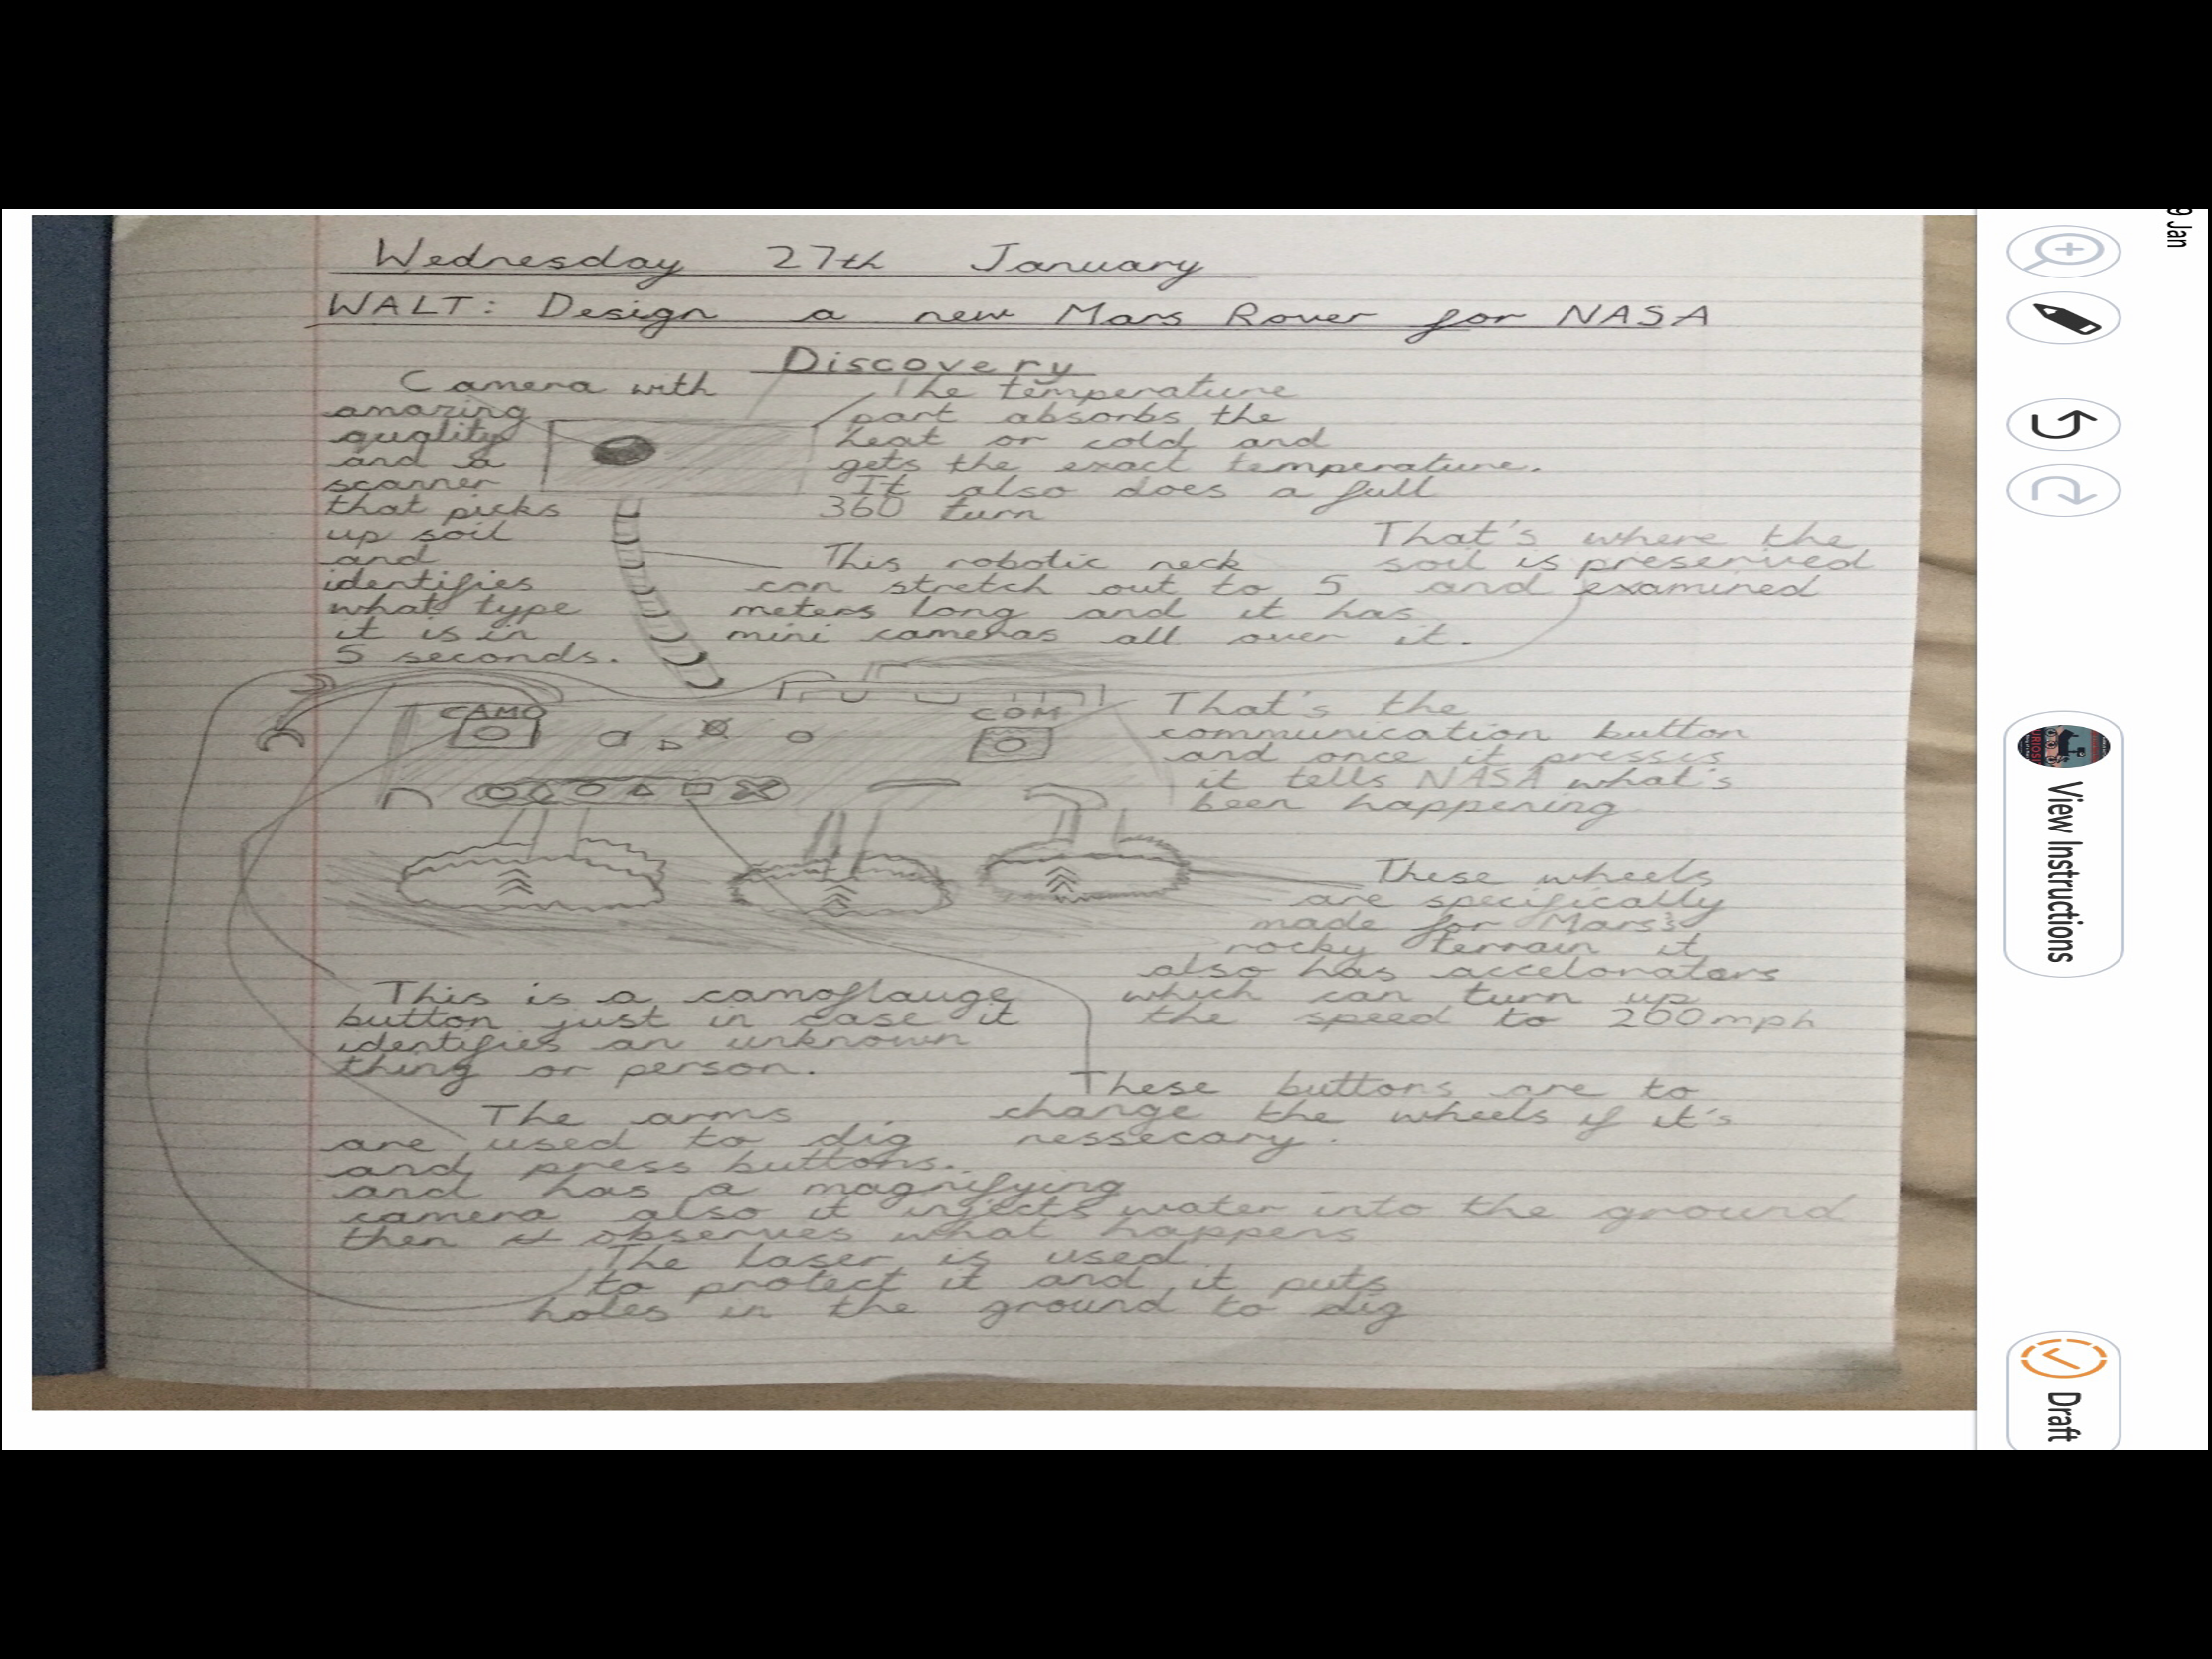 Wednesday 27th January
WALT: Design a new Mars Rover for NASA
Discovery
Camera with
amazing
quality
and a
scanner
that picks
up soil
and
identifies
what type
it is in
5 seconds.
The temperature
part absorbs the
heat or cold and
gets the exact temperature.
It also does a full
360 turn
This robotic neck
can stretch out to 5
meters long and it has
mini cameras all over it.
That's where the
soil is preserved
and examined
CAMO
COM
That's the
communication button
and once it presses
it tells NASA what's
been happening
These wheels
are specifically
made for Mars's
rocky terrain it
also has accelorators
which can turn up
the speed to 200mph
This is a camoflauge
button just in case it
identifies an unknown
thing or person.
These buttons are to
change the wheels if it's
nessecary.
The arms
are used to dig
and press buttons.
and has a magnifying
camera also it injects water into the ground
then it observes what happens
The laser is used
to protect it and it puts
holes in the ground to dig
9 Jan
View Instructions
Draft